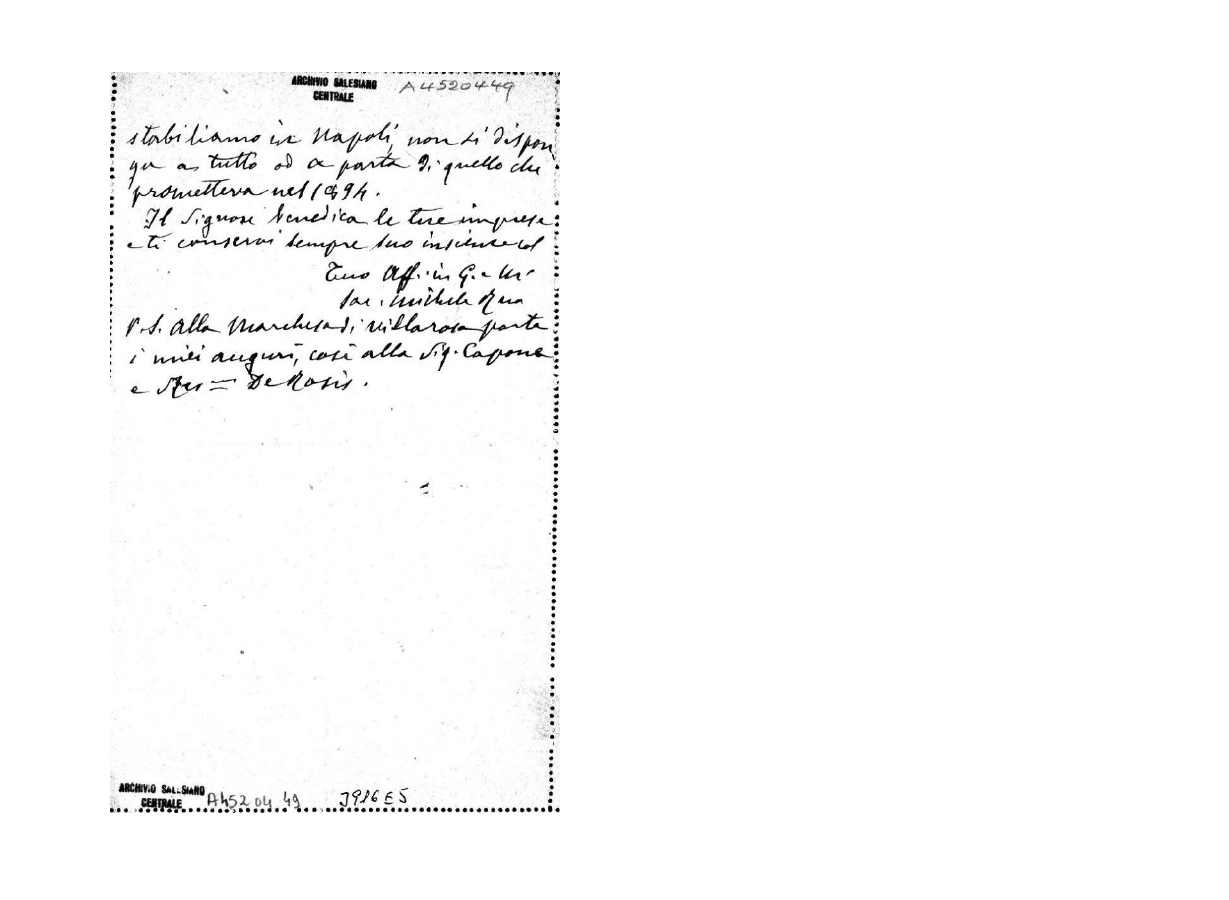 ARCHIVIO SALESIANO
CENTRALE
A4520449
stabiliamo in Napoli, non si dispon
ga a tutto od a parte di quello che
prometteva nel 1894.
Il Signore benedica le tue imprese
e ti conservi sempre suo insieme col
Tuo Aff. in G. e M.
Sac. Michele Rua
P.S. Alla Marchesa di Villarosa porta
i miei auguri, così alla Sig. Capone
e De Rosis.
ARCHIVIO SALESIANO
CENTRALE
A452 04 49
3986E5